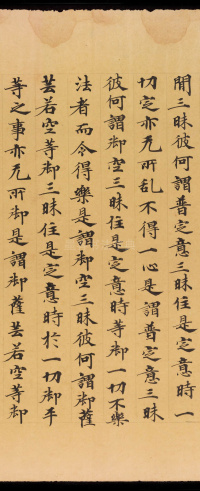 聞三昧彼何謂普定意三昧住是定意時一
切定亦无所乱不得一心是謂普定意三昧
彼何謂御空三昧住是定意時等御一切不樂
法者而令得樂是謂御空三昧彼何謂御薩
芸若空等御三昧住是定意時於一切御平
等之事亦无所御是謂御薩芸若空等御